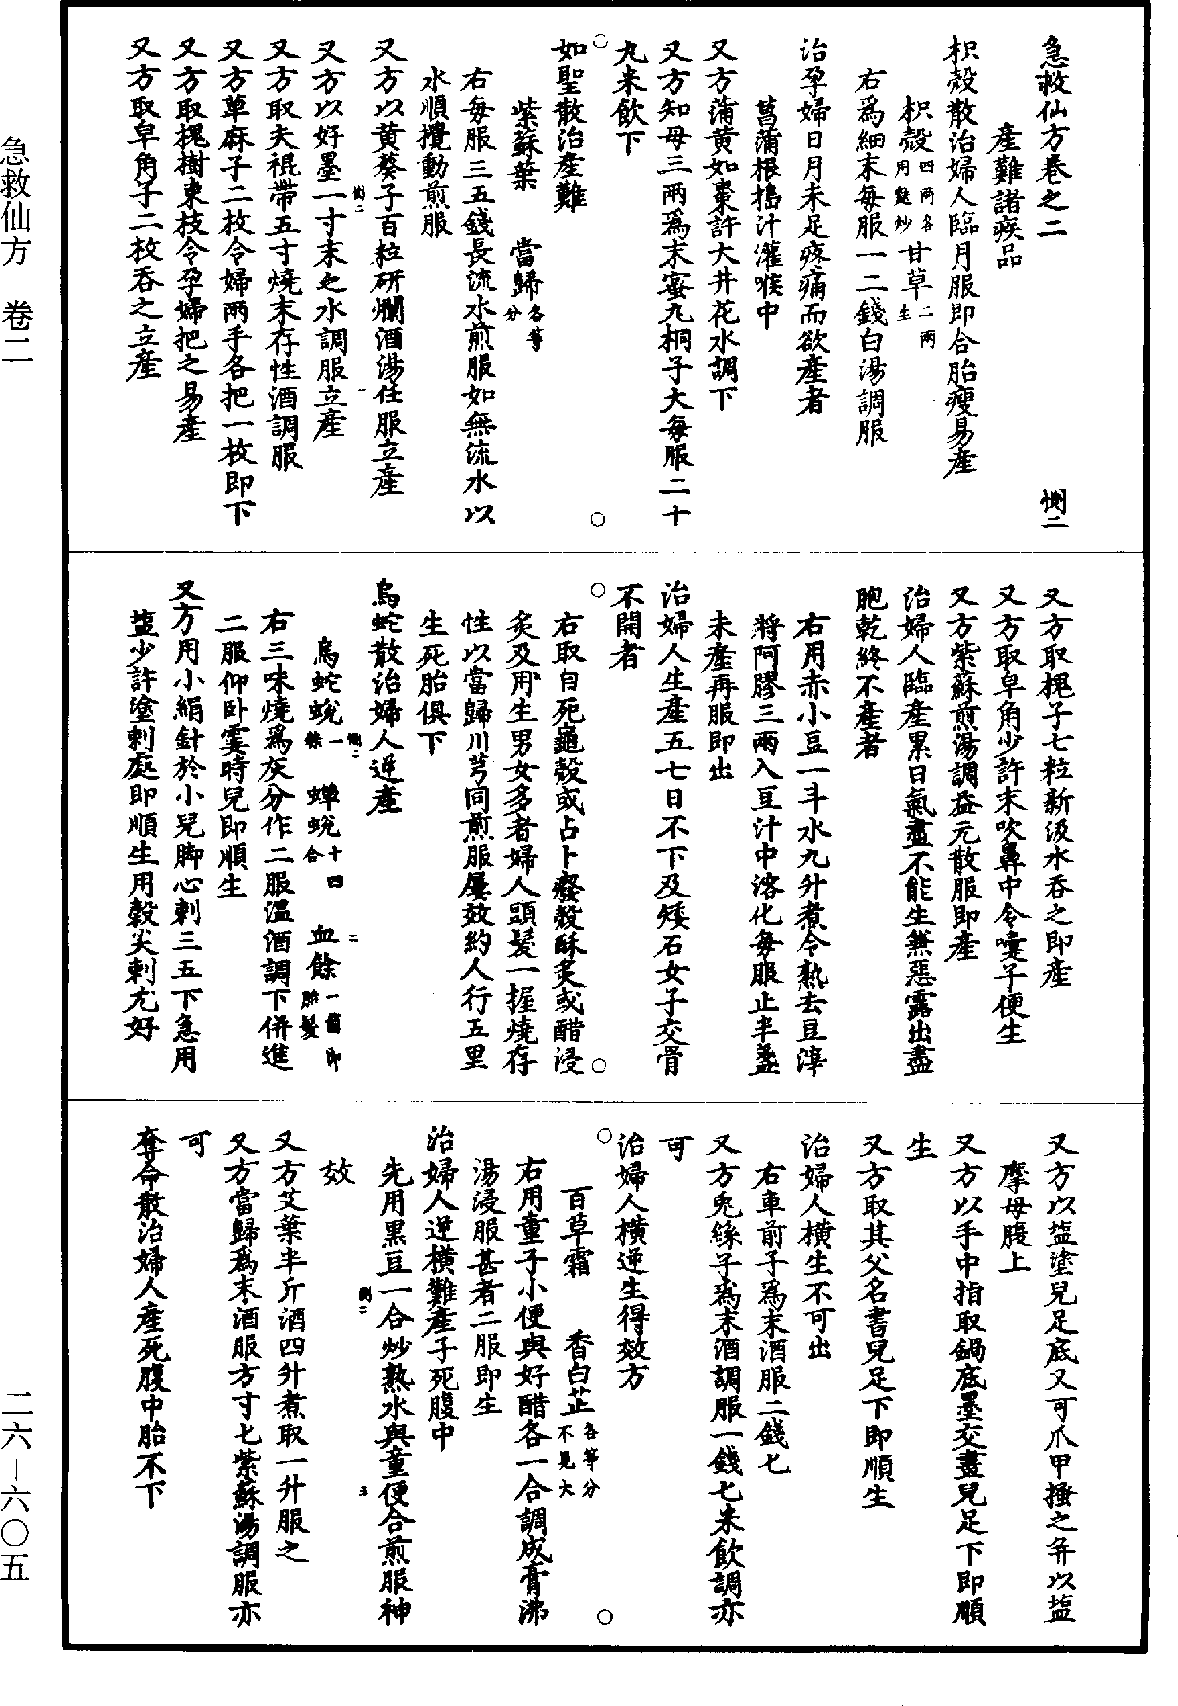 急救仙方卷之二 惻二
產難諸疾品
枳殼散治婦人臨月服即合胎瘦易產
枳殼四兩各用麩炒 甘草二兩生
右爲細末每服一二錢白湯調服
治孕婦日月未足疼痛而欲產者
菖蒲根搗汁灌喉中
又方蒲黃如棗許大井花水調下
又方知母三兩爲末蜜丸桐子大每服二十
丸米飲下
如聖散治產難
紫蘇葉 當歸各等分
右每服三五錢長流水煎服如無流水以
水順攪動煎服
又方以黃葵子百粒研爛酒湯任服立產
又方以好墨一寸末之水調服立產
又方取夫裩帶五寸燒末存性酒調服
又方萆麻子二枚令婦兩手各把一枚即下
又方取槐樹東枝令孕婦把之易產
又方取皁角子二枚吞之立產
又方取槐子七粒新汲水吞之即產
又方取皁角少許末吹鼻中令嚏子便生
又方紫蘇煎湯調益元散服即產
治婦人臨產累日氣盡不能生兼惡露出盡
胞乾終不產者
右用赤小豆一斗水九升煮令熟去豆滓
將阿膠三兩入豆汁中溶化每服止半盞
未產再服即出
治婦人生產五七日不下及矮石女子交骨
不開者
右取自死龜殼或占卜癈殼酥炙或醋浸
炙及用生男女多者婦人頭髮一握燒存
性以當歸川芎同煎服屢效約人行五里
生死胎俱下
烏蛇散治婦人逆產
烏蛇蛻一條 蟬蛻十四合 血餘一箇即胎髮
右三味燒爲灰分作二服溫酒調下併進
二服仰卧霎時兒即順生
又方用小絹針於小兒脚心刺三五下急用
塩少許塗刺處即順生用穀尖刺尤好
又方以塩塗兒足底又可爪甲搔之并以塩
摩母腹上
又方以手中指取鍋底墨交畫兒足下即順
生
又方取其父名書兒足下即順生
治婦人橫生不可出
右車前子爲末酒服二錢七
又方兎絲子爲末酒調服一錢七米飲調亦
可
治婦人橫逆生得效方
百草霜 香白芷各等分不見大
右用童子小便與好醋各一合調成膏沸
湯浸服甚者二服即生
治婦人逆橫難產子死腹中
先用黑豆一合炒熟水與童便合煎服神
效
又方艾葉半斤酒四升煮取一升服之
又方當歸爲末酒服方寸七紫蘇湯調服亦
可
奪命散治婦人產死腹中胎不下
急救仙方 卷二
二六—六〇五